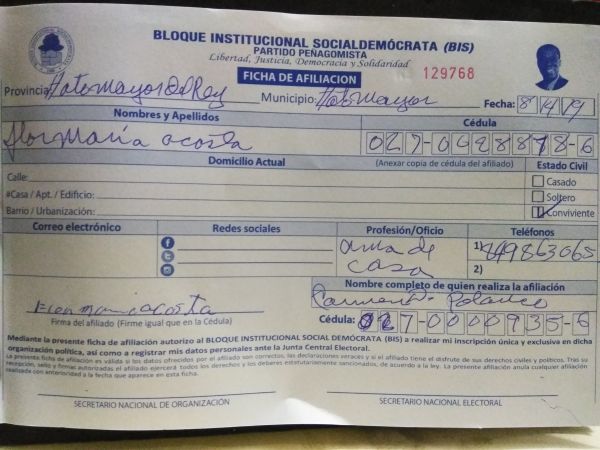 BLOQUE INSTITUCIONAL SOCIALDEMÓCRATA (BIS)
PARTIDO PEÑAGOMISTA
Libertad, Justicia, Democracia y Solidaridad
FICHA DE AFILIACION 129768
Provincia: Hato Mayor Del Rey Municipio: Hato Mayor Fecha: 8/4/19
Nombres y Apellidos Cédula
flor María acosta
Domicilio Actual (Anexar copia de cédula del afiliado) Estado Civil
Calle: Casado
#Casa / Apt. / Edificio: Soltero
Barrio / Urbanización: Conviviente
Correo electrónico Redes sociales Profesión/Oficio Teléfonos
ama de 1)
casa 2)
Nombre completo de quien realiza la afiliación
acosta
Firma del afiliado (Firme igual que en la Cédula) Cédula: 027-0000935-6
Mediante la presente ficha de afiliación autorizo al BLOQUE INSTITUCIONAL SOCIAL DEMÓCRATA (BIS) a realizar mi inscripción única y exclusiva en dicha
organización política, así como a registrar mis datos personales ante la Junta Central Electoral.
La presente ficha de afiliación es válida si los datos ofrecidos por el afiliado son correctos, las declaraciones veraces y si el titular tiene el disfrute de sus derechos civiles y políticos. Tras su
recepción, sello y firmas autorizadas el afiliado ejercerá todos los derechos y los deberes estatutariamente sancionados, de acuerdo a la ley. La presente afiliación anula cualquier afiliación
realizada con anterioridad a la fecha que aparece en esta ficha.
SECRETARIO NACIONAL DE ORGANIZACIÓN SECRETARIO NACIONAL ELECTORAL